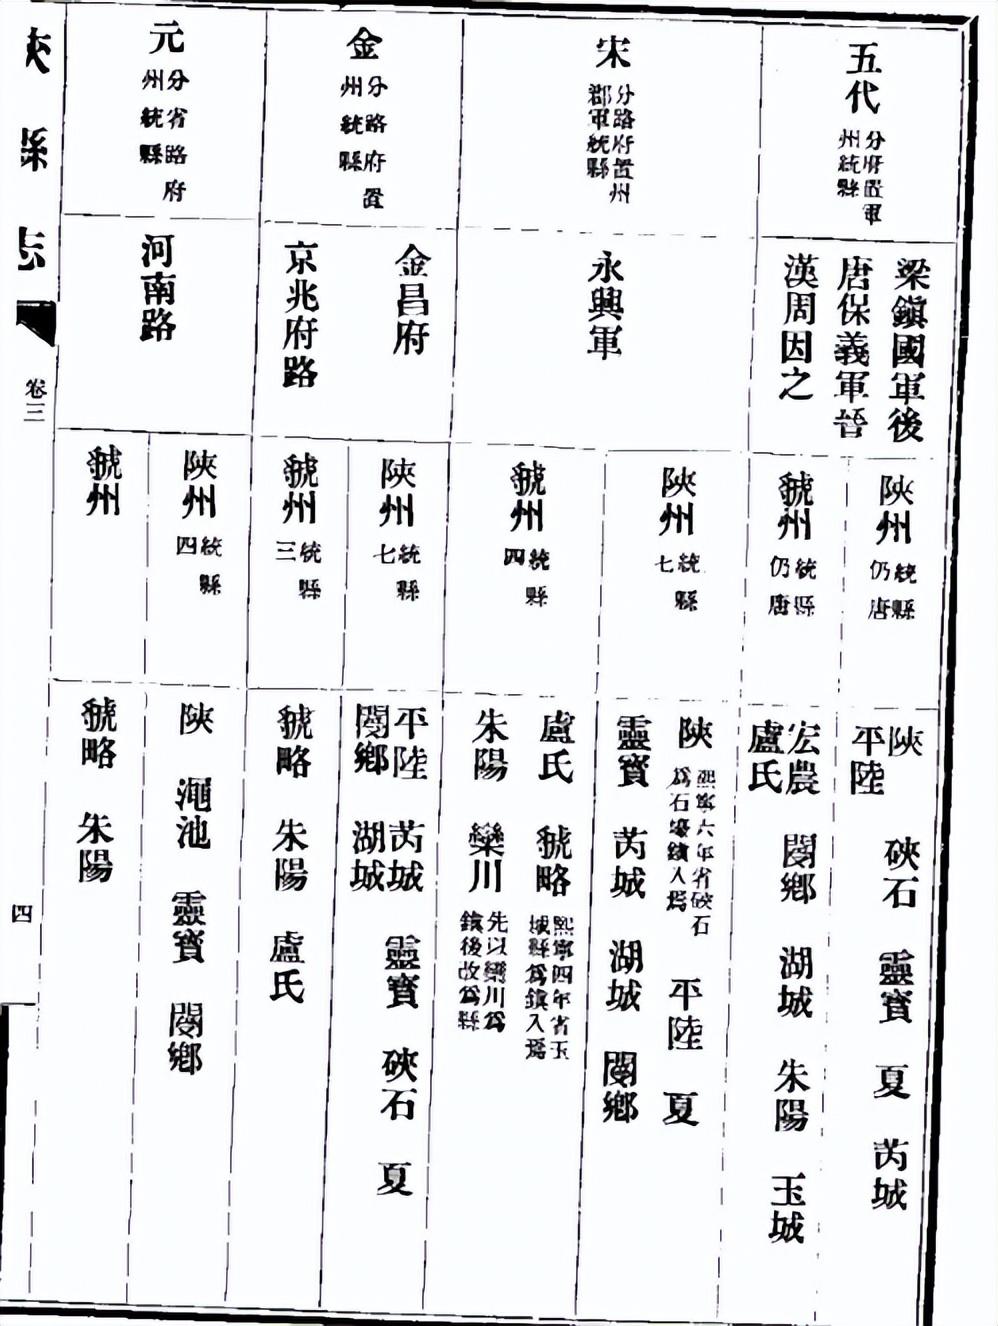 五代
分府置軍
州統縣
梁鎮國軍後
唐保義軍晉
漢周因之
陝州
統縣
仍唐
陝 硤石 靈寶 夏 芮城
平陸
虢州
統縣
仍唐
宏農 閿鄉 湖城 朱陽 玉城
盧氏
宋
分路府置州
郡軍統縣
永興軍
陝州
統縣
七
陝
熙寧六年省硤石
爲石壕鎮入焉
平陸 夏
靈寶 芮城 湖城 閿鄉
虢州
統縣
四
盧氏 虢略
熙寧四年省玉
城縣爲鎮入焉
朱陽 欒川
先以欒川爲
鎮後改爲縣
金
分路府置
州統縣
金昌府
京兆府路
陝州
統縣
七
平陸 芮城 靈寶 硤石 夏
閿鄉 湖城
虢州
統縣
三
虢略 朱陽 盧氏
元
分省路府
州統縣
河南路
陝州
統縣
四
陝 澠池 靈寶 閿鄉
虢州
虢略 朱陽
陝縣志
卷三
四